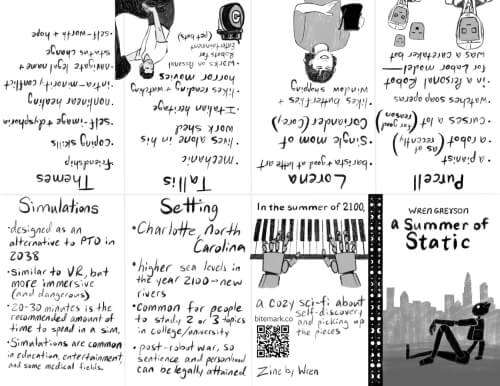 Purcell
•a pianist
•a robot (as of recently)
•curses a lot (for good reason)
•watches soap operas
•in a Personal Robot
labor model
was a caretaker bot
Lorena
•barista + good at latte art
•single mom of
Coriander (Cory)
•likes butterflies +
window shopping
Tallis
•mechanic
•lives alone in his
work shed
•Italian heritage
•likes reading + watching
horror movies
•works on Personal
Robots for
Entertainment
(pet bots)
Themes
•friendship
•coping skills
•self-image + dysphoria
•nonlinear healing
•intra-minority conflict
•navigate legal name +
status change
•self-worth + hope
Simulations
•designed as an
alternative to PTO in
2038
•Similar to VR, but
more immersive
(and dangerous)
•20-30 minutes is the
recommended amount of
time to spend in a sim.
•Simulations are common
in education, entertainment,
and some medical fields.
Setting
•Charlotte, North
Carolina
•higher sea levels in
the year 2100→new
rivers
•Common for people
to study 2 or 3 topics
in college/university
•post-robot war, so
sentience and personhood
can be legally attained
In the summer of 2100,
a cozy sci-fi about
self-discovery
and picking up
the pieces
bitemark.co
Zine by Wren
WREN GREYSON
a Summer of
Static